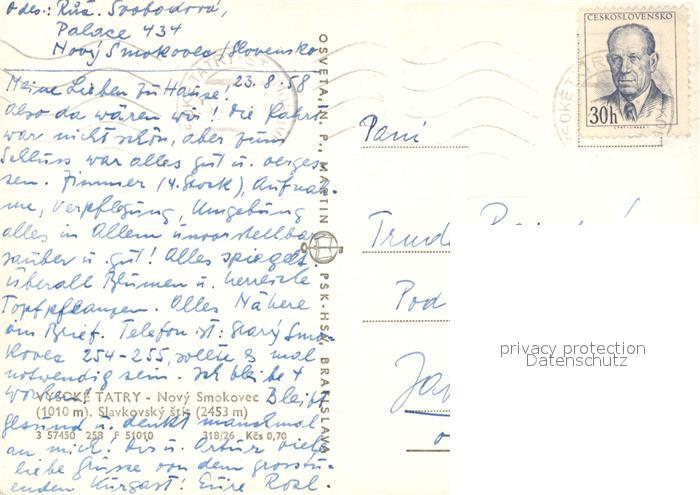 Odes.: Růž. Svobodová,
Palace 434
Nový Smokovec/Slovensko
23.8.58
Meine Lieben zu Hause,
Also da wären wir! Die Fahrt
war nicht schön, aber zum
Schluss war alles gut u. verges-
sen. Zimmer (4. Stock), Aufnah-
me, Verpflegung, Umgebung
alles in Allem unvorstellbar
sauber u. gut! Alles spiegelt
überall Blumen u. herrliche
Topfpflanzen. Alles Nähere
im Brief. Telefon ist: Starý Smo-
kovec 254-255, sollte es mal
notwendig sein. Ich bleibe 4
Wochen! Bleibt
gesund u. denkt manchmal
an mich. Artur viele
liebe Grüsse von dem
Kurgast! Eure Rozl.
VYSOKÉ TATRY - Nový Smokovec
(1010 m). Slavkovský štít (2453 m)
3 57450 258 F 51010 318/26 Kčs 0,70
OSVETA, N. P., MARTIN
PSK-HSV, BRATISLAVA
ČESKOSLOVENSKO
30h
Paní
Pod
privacy protection
Datenschutz